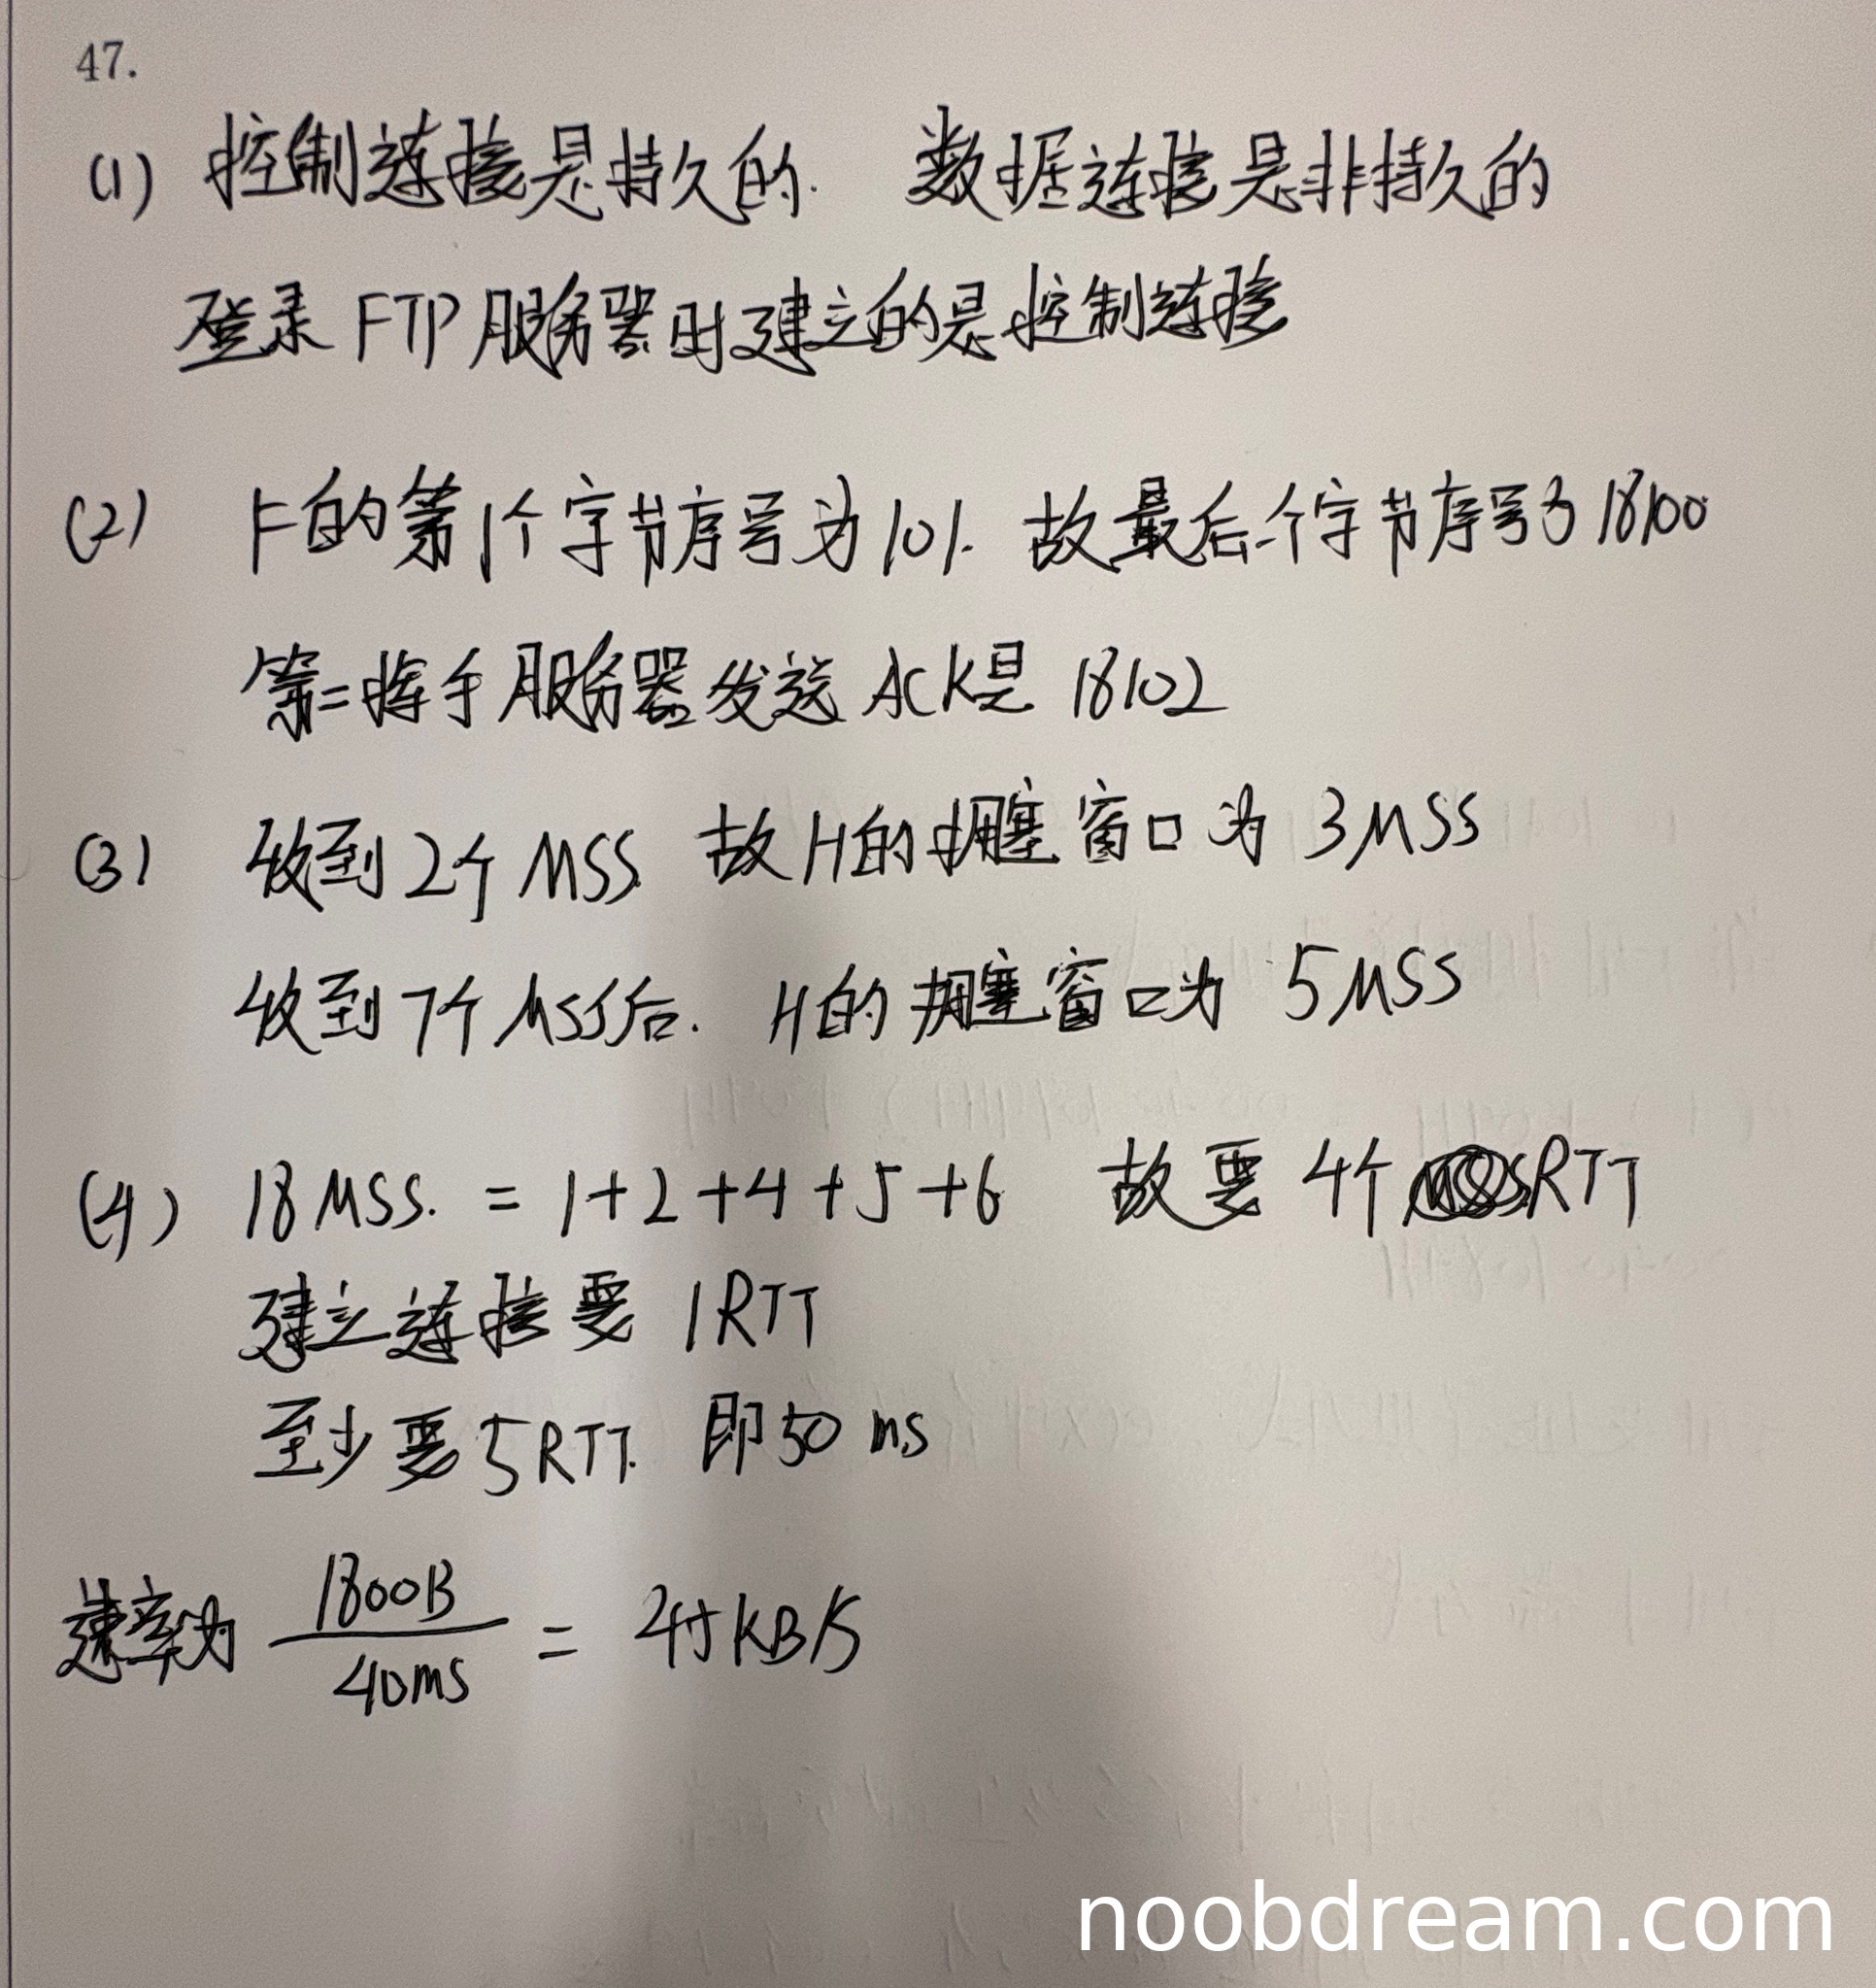 47.
(1) 控制连接是持久的. 数据连接是非持久的
登录 FTP 服务器时建立的是控制连接
(2) F的第1个字节序号为101. 故最后一个字节序号为18100
第二挥手服务器发送 ACK是 18102
(3) 收到2个 MSS. 故H的拥塞窗口为 3MSS
收到7个MSS后. H的拥塞窗口为 5MSS
(4) 18 MSS. = 1+2+4+5+6 故要 4个 RTT
建立连接要 1RTT
至少要 5RTT. 即50 ms
速率为 1800B / 40ms = 45KB/S
noobdream.com